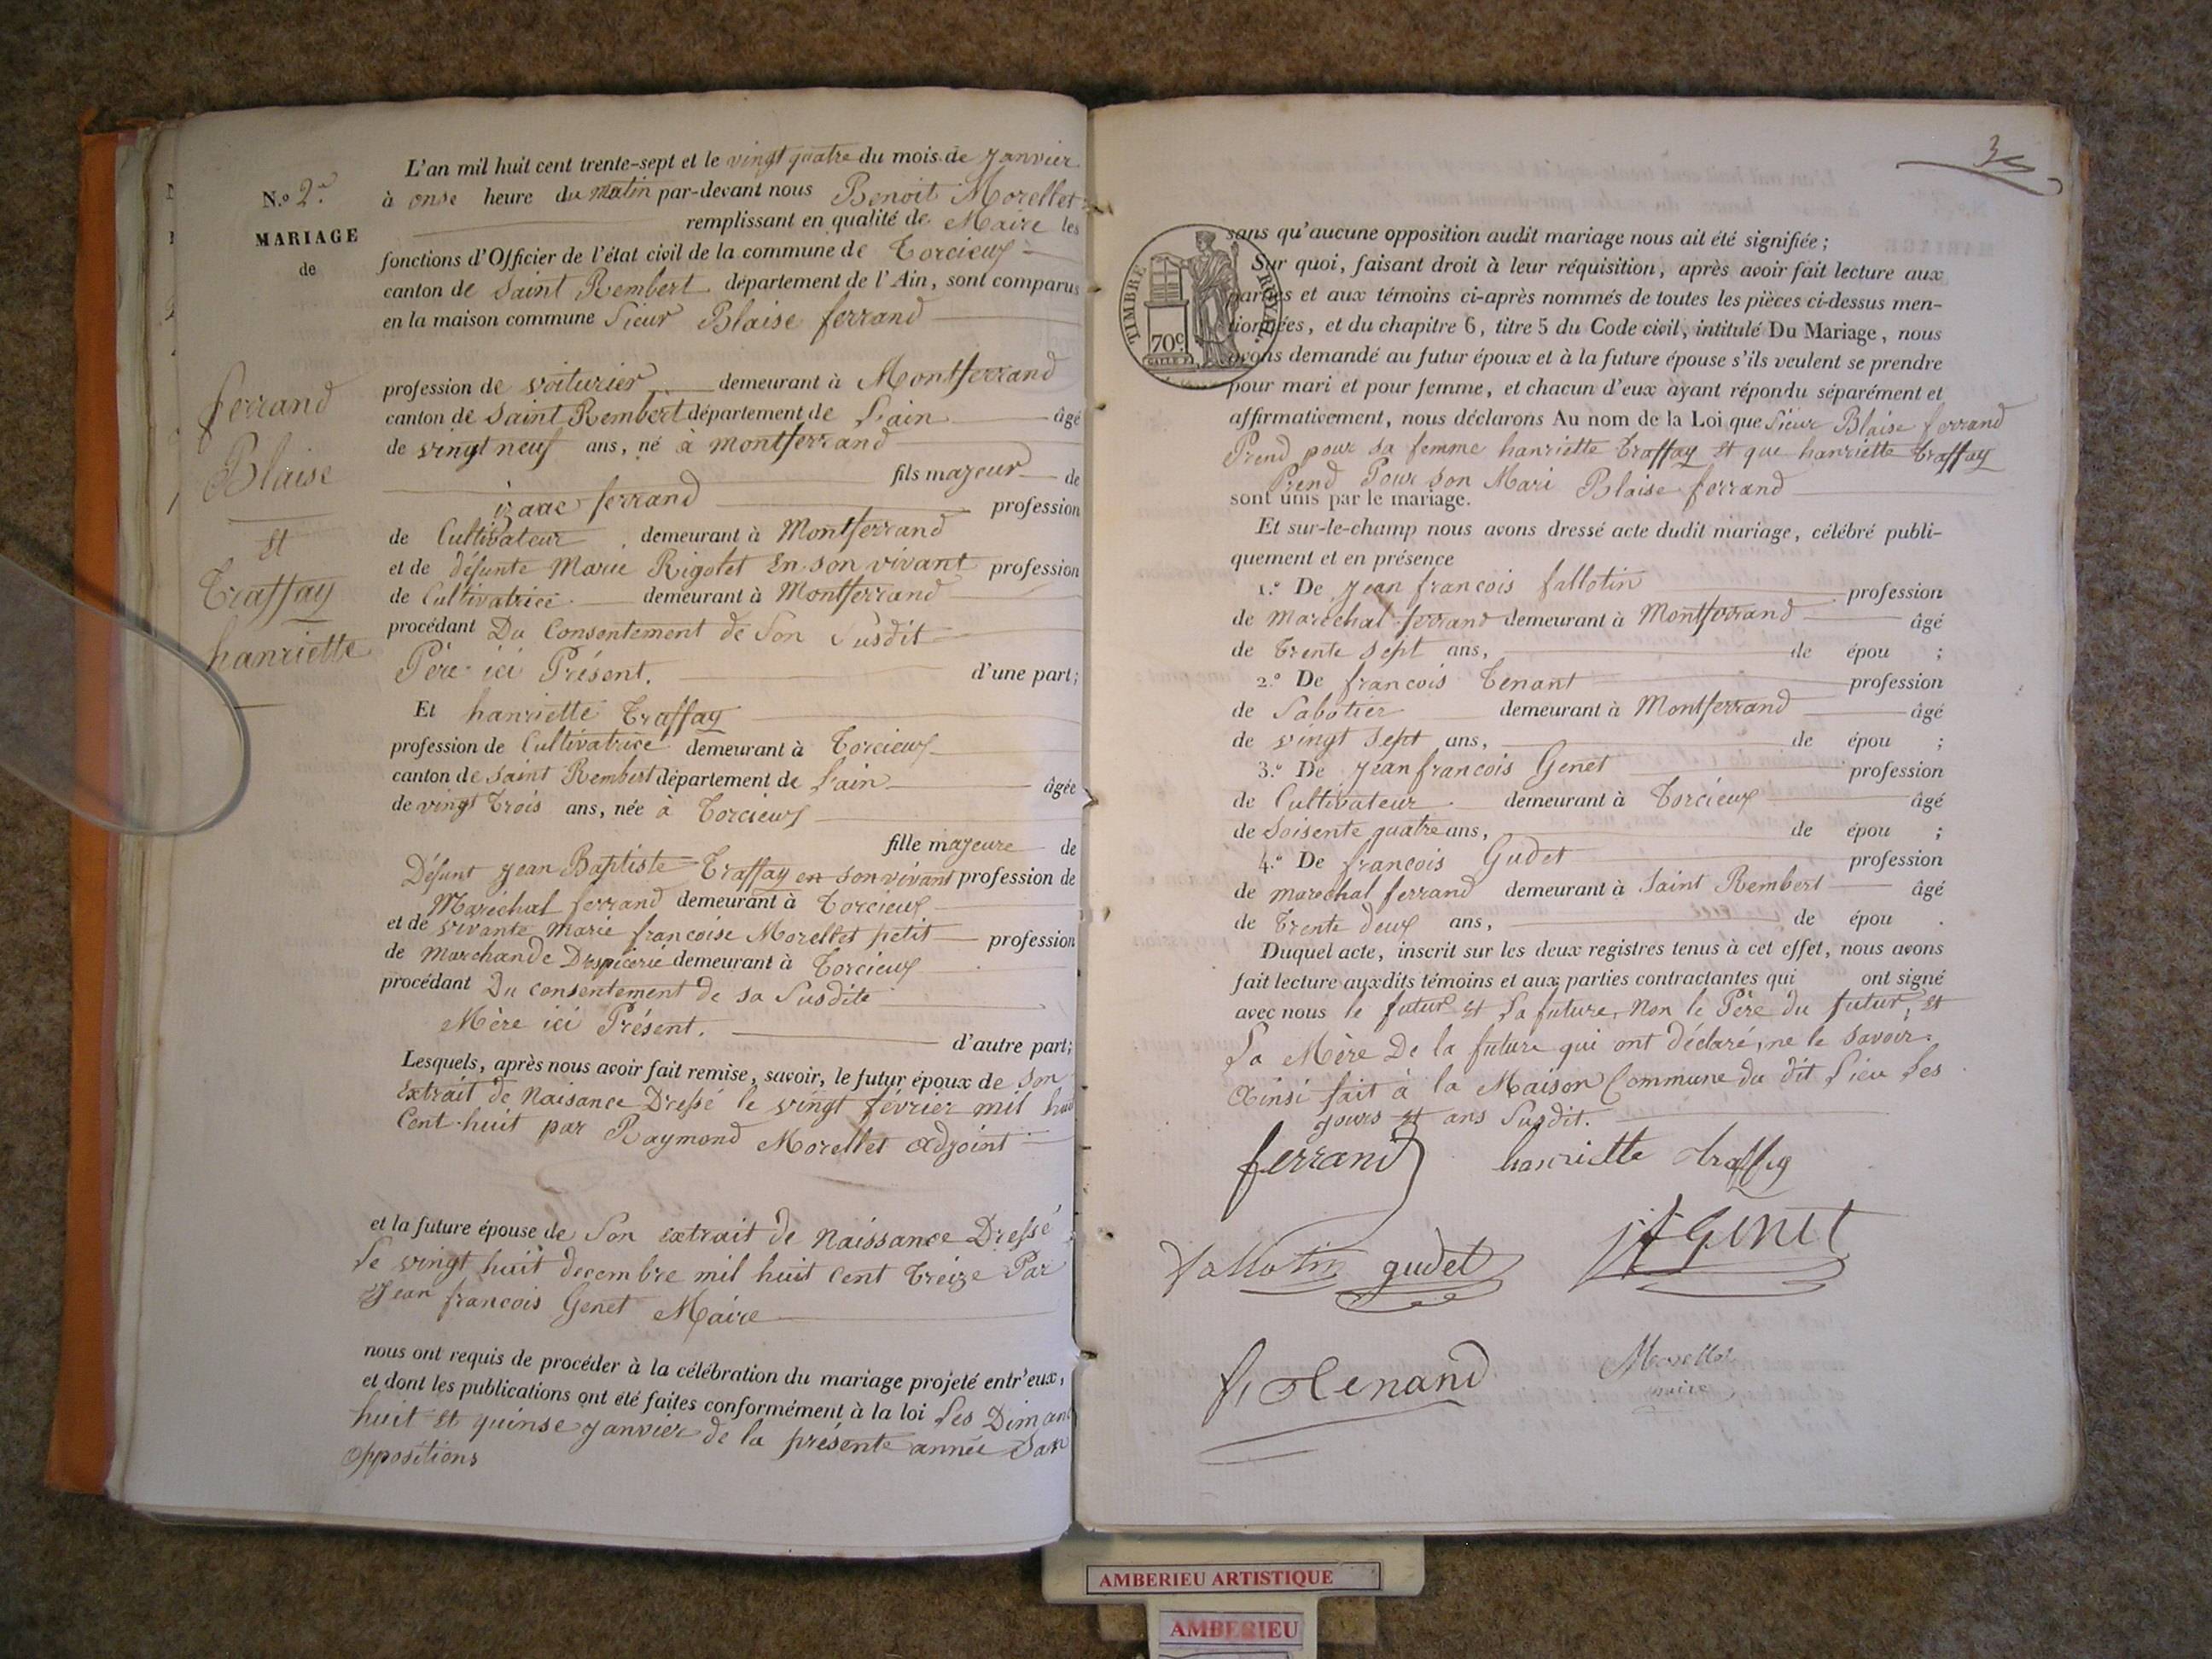 N.o 2.e
MARIAGE
de
ferrand
Blaise
et
Traffay
hanriette
L'an mil huit cent trente-sept et le vingt quatre du mois de Janvier
à onse heure du matin par-devant nous Benoit Morellet
remplissant en qualité de Maire les
fonctions d'Officier de l'état civil de la commune de Torcieux
canton de Saint Rembert département de l'Ain, sont comparus
en la maison commune Sieur Blaise ferrand
profession de voiturier demeurant à Montferrand
canton de Saint Rembert département de L'ain âgé
de vingt neuf ans, né à montferrand
fils majeur de
izaac ferrand profession
de Cultivateur demeurant à Montferrand
et de défunte Marie Rigolet En son vivant profession
de Cultivatrice demeurant à Montferrand
procédant Du Consentement de Son Susdit
Père ici Présent. d'une part;
Et hanriette Traffay
profession de Cultivatrice demeurant à Torcieux
canton de Saint Rembert département de L'ain âgée
de vingt Trois ans, née à Torcieux
fille majeure de
Défunt Jean Baptiste Traffay en son vivant profession de
Maréchal ferrand demeurant à Torcieux
et de vivante Marie françoise Morellet petit profession
de Marchande Depicerie demeurant à Torcieux
procédant Du consentement de sa Susdite
Mère ici Présent. d'autre part;
Lesquels, après nous avoir fait remise, savoir, le futur époux de Son
Extrait de Naisance Dressé le vingt février mil huit
Cent huit par Raymond Morellet adjoint
et la future épouse de Son extrait de Naissance Dressé
Le vingt huit decembre mil huit Cent Treize Par
Jean francois Genet Maire
nous ont requis de procéder à la célébration du mariage projeté entr'eux,
et dont les publications ont été faites conformément à la loi Les Diman
huit et quinse janvier de la présente année San
oppositions
TIMBRE ROYAL.
70c
sans qu'aucune opposition audit mariage nous ait été signifiée;
Sur quoi, faisant droit à leur réquisition, après avoir fait lecture aux
parties et aux témoins ci-après nommés de toutes les pièces ci-dessus men-
tionnées, et du chapitre 6, titre 5 du Code civil, intitulé Du Mariage, nous
avons demandé au futur époux et à la future épouse s'ils veulent se prendre
pour mari et pour femme, et chacun d'eux ayant répondu séparément et
affirmativement, nous déclarons Au nom de la Loi que Sieur Blaise ferrand
Prend pour sa femme hanriette Traffay et que hanriette Traffay
Prend Pour son Mari Blaise ferrand
sont unis par le mariage.
Et sur-le-champ nous avons dressé acte dudit mariage, célébré publi-
quement et en présence
1.o De Jean françois fallotin profession
de maréchal ferrand demeurant à Montferrand âgé
de Trente sept ans, de épou ;
2.o De françois Tenant profession
de Sabotier demeurant à Montferrand âgé
de vingt sept ans, de épou ;
3.o De Jean francois Genet profession
de Cultivateur demeurant à Torcieux âgé
de Soisente quatre ans, de épou ;
4.o De françois Gudet profession
de maréchal ferrand demeurant à Saint Rembert âgé
de Trente deux ans, de épou .
Duquel acte, inscrit sur les deux registres tenus à cet effet, nous avons
fait lecture auxdits témoins et aux parties contractantes qui ont signé
avec nous le futur et La future, Non le Père du futur, et
La Mère De la future qui ont déclaré, ne le savoir.
Ainsi fait à la Maison Commune du dit Lieu Les
jours et ans Susdit.
ferrand hanriette traffay
fallotin gudet jf Genet
f. Tenand Morellet
maire
AMBERIEU ARTISTIQUE
AMBERIEU